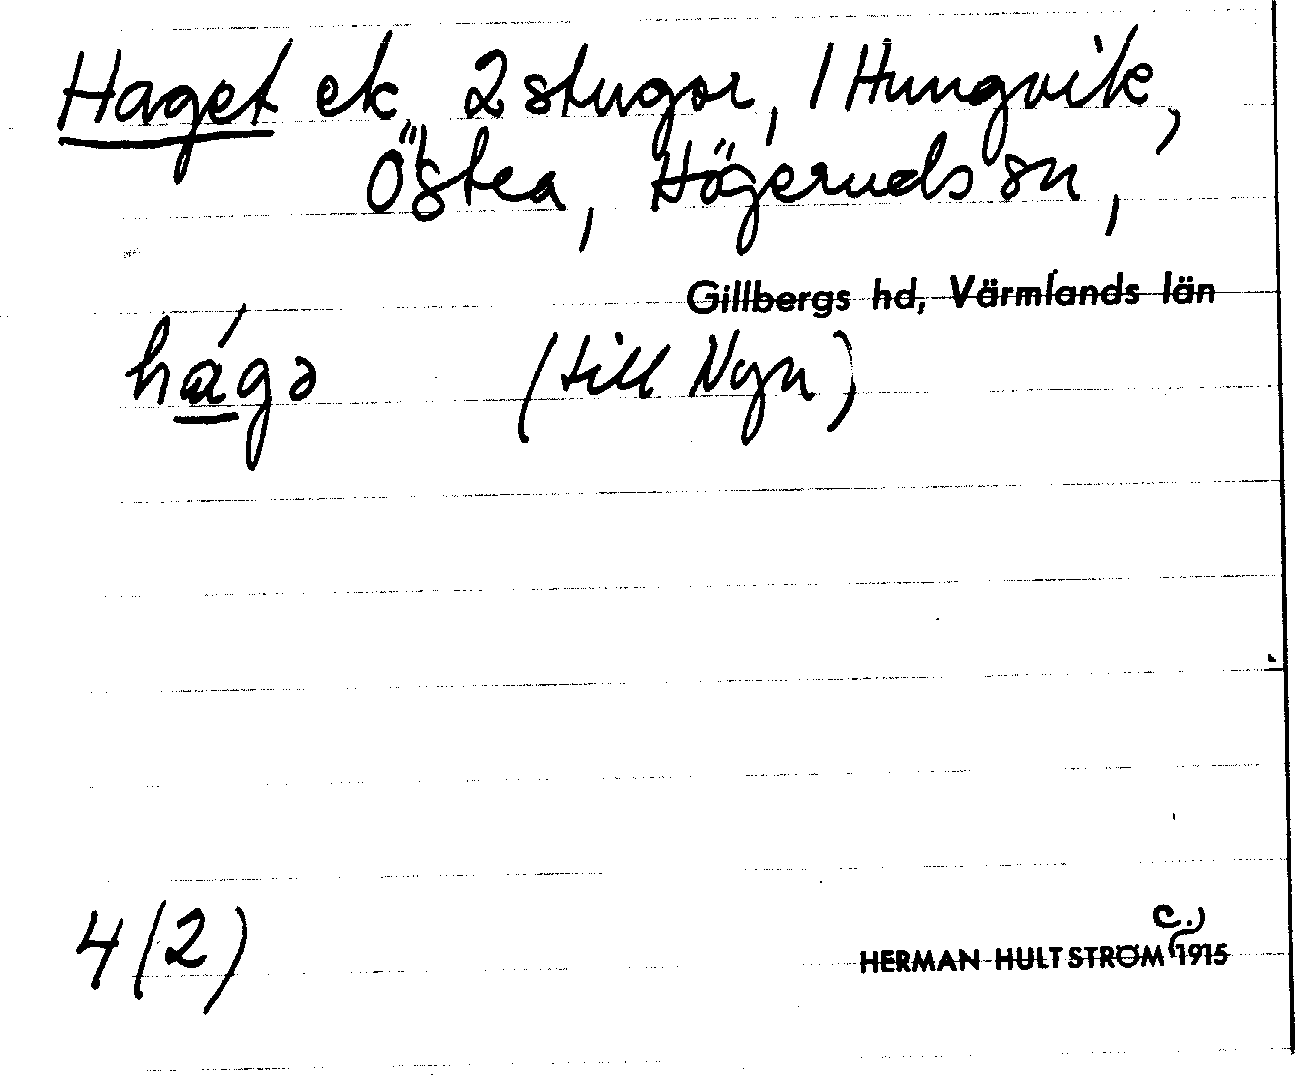 Haget ek, 2 stugor, 1 Hungvik,
Östra, Högeruds sn,
Gillbergs hd, Värmlands län
há̱gə (till Nyn)
4 (2)
c.)
HERMAN HULTSTRÖM 1915